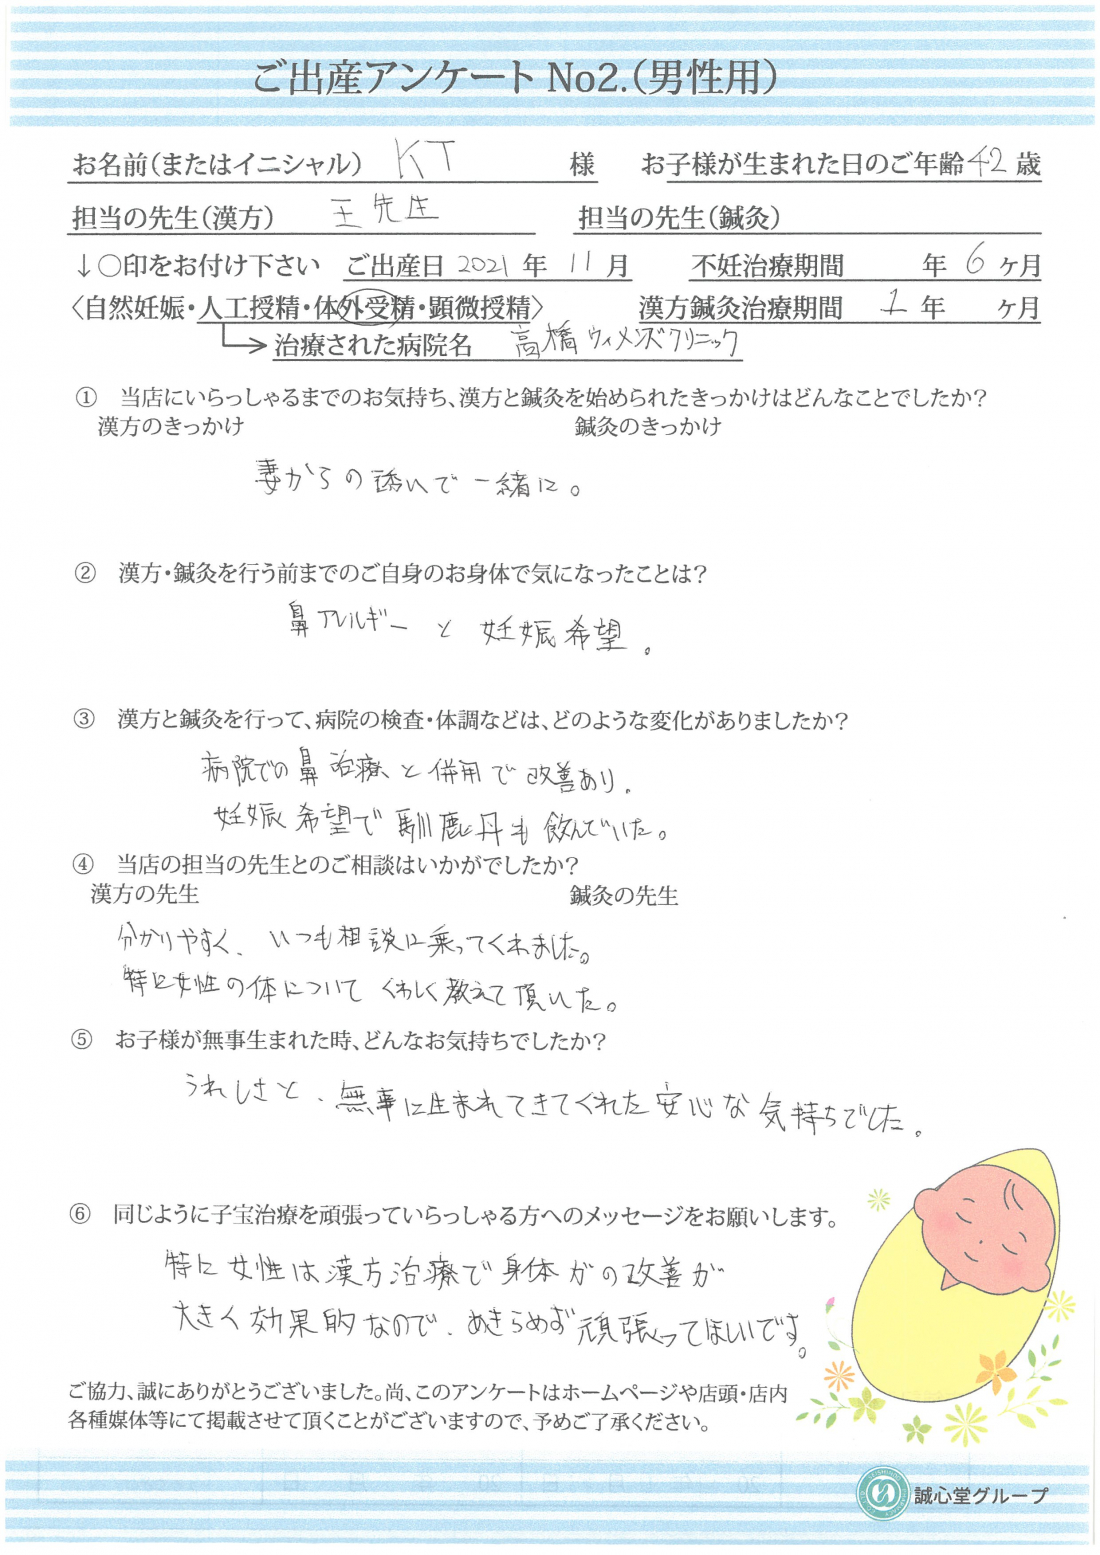 ご出産アンケート No2.(男性用)
お名前(またはイニシャル) KT 様 お子様が生まれた日のご年齢 42 歳
担当の先生(漢方) 王先生 担当の先生(鍼灸)
↓○印をお付け下さい ご出産日 2021 年 11 月 不妊治療期間 年 6 ヶ月
〈自然妊娠・人工授精・体外受精・顕微授精〉 漢方鍼灸治療期間 1 年 ヶ月
治療された病院名 高橋ウィメンズクリニック
① 当店にいらっしゃるまでのお気持ち、漢方と鍼灸を始められたきっかけはどんなことでしたか?
漢方のきっかけ 鍼灸のきっかけ
妻からの誘いで一緒に。
② 漢方・鍼灸を行う前までのご自身のお身体で気になったことは?
鼻アレルギーと妊娠希望。
③ 漢方と鍼灸を行って、病院の検査・体調などは、どのような変化がありましたか?
病院での鼻治療と併用で改善あり。
妊娠希望で馴鹿丹も飲んでいた。
④ 当店の担当の先生とのご相談はいかがでしたか?
漢方の先生 鍼灸の先生
分かりやすく、いつも相談に乗ってくれました。
特に女性の体についてくわしく教えて頂いた。
⑤ お子様が無事生まれた時、どんなお気持ちでしたか?
うれしさと、無事に生まれてきてくれた安心な気持ちでした。
⑥ 同じように子宝治療を頑張っていらっしゃる方へのメッセージをお願いします。
特に女性は漢方治療で身体がの改善が
大きく効果的なので、あきらめず頑張ってほしいです。
ご協力、誠にありがとうございました。尚、このアンケートはホームページや店頭・店内
各種媒体等にて掲載させて頂くことがございますので、予めご了承ください。
誠心堂グループ